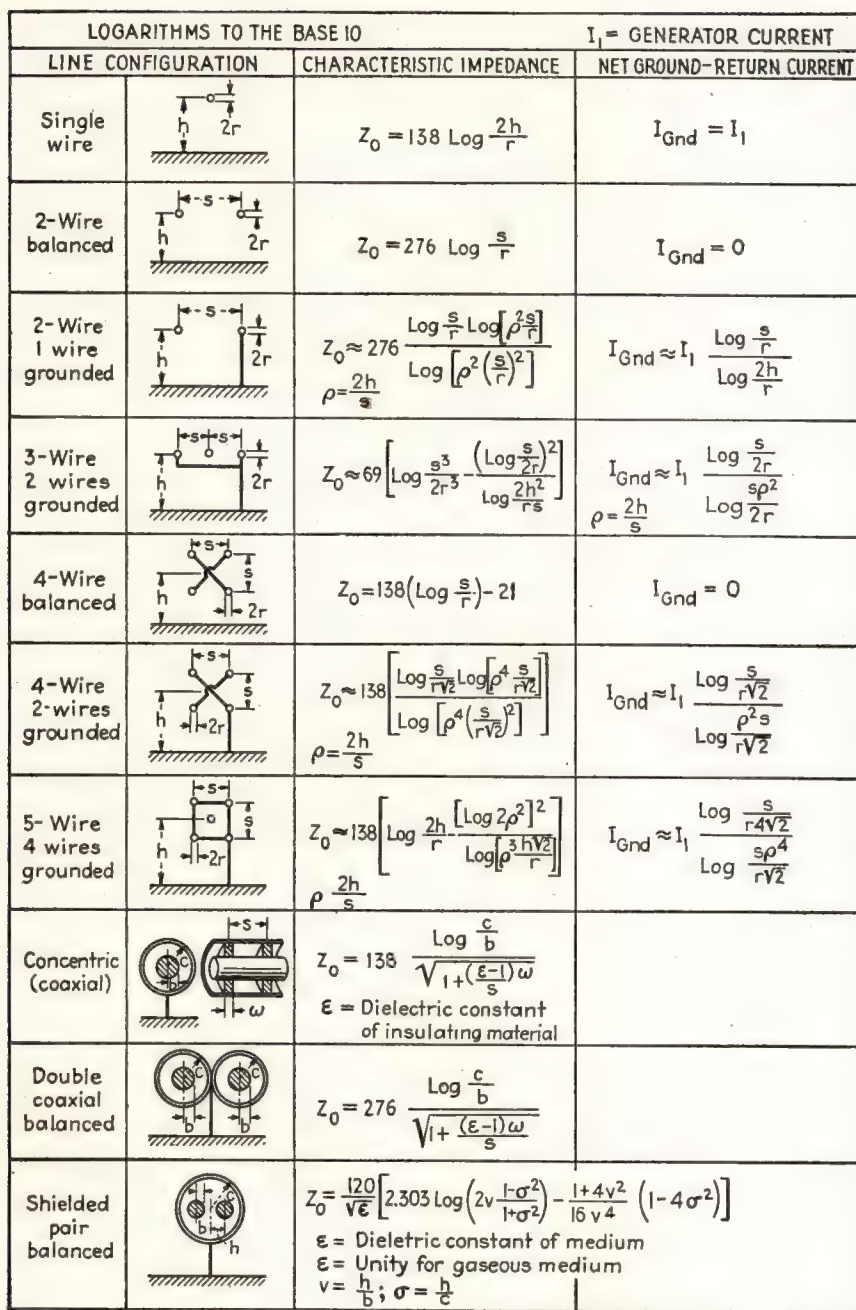 LOGARITHMS TO THE BASE 10 I₁ = GENERATOR CURRENT
LINE CONFIGURATION CHARACTERISTIC IMPEDANCE NET GROUND-RETURN CURRENT
Single wire h 2r Z₀ = 138 Log 2h/r I_Gnd = I₁
2-Wire balanced s h 2r Z₀ = 276 Log s/r I_Gnd = 0
2-Wire 1 wire grounded s h 2r Z₀ ≈ 276 (Log s/r Log[ρ² s/r]) / (Log [ρ² (s/r)²]) I_Gnd ≈ I₁ (Log s/r) / (Log 2h/r)
ρ = 2h/s
3-Wire 2 wires grounded s s h 2r Z₀ ≈ 69 [Log s³/2r³ - (Log s/2r)² / (Log 2h²/rs)] I_Gnd ≈ I₁ (Log s/2r) / (Log sρ²/2r)
ρ = 2h/s
4-Wire balanced s s h 2r Z₀ = 138 (Log s/r) - 21 I_Gnd = 0
4-Wire 2-wires grounded s s h 2r Z₀ ≈ 138 [(Log s/r√2 Log[ρ⁴ s/r√2]) / (Log [ρ⁴ (s/r√2)²])] I_Gnd ≈ I₁ (Log s/r√2) / (Log ρ²s/r√2)
ρ = 2h/s
5-Wire 4 wires grounded s s h 2r Z₀ ≈ 138 [Log 2h/r - [Log 2ρ²]² / (Log[ρ³ h√2/r])] I_Gnd ≈ I₁ (Log s/r4√2) / (Log sρ⁴/r√2)
ρ 2h/s
Concentric (coaxial) c b s ω Z₀ = 138 (Log c/b) / √(1 + ((ε-1)/s) ω)
ε = Dielectric constant
of insulating material
Double coaxial balanced c c b b Z₀ = 276 (Log c/b) / √(1 + (ε-1)ω/s)
Shielded pair balanced c b h Z₀ = 120/√ε [2.303 Log (2v (1-σ²)/(1+σ²)) - (1+4v²)/(16v⁴) (1-4σ²)]
ε = Dieletric constant of medium
ε = Unity for gaseous medium
v = h/b ; σ = h/c